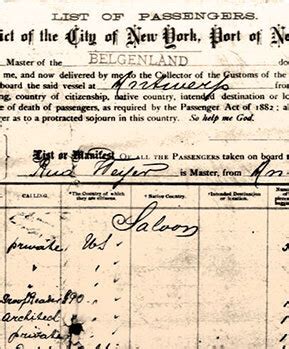 LIST OF PASSENGERS.
ict of the City of New York, Port of Ne
Master of the BELGENLAND do
e, and now delivered by me to the Collector of the Customs of the
board the said vessel at Antwerp
ing, country of citizenship, native country, intended destination or lo
e of death of passengers, as required by the Passenger Act of 1882; als
ger as to a protracted sojourn in this country. So help me God.
List or Manifest OF ALL THE PASSENGERS taken on board
is Master, from An
CALLING. *The Country of which they are citizens. *Native Country. *Intended Destination or Location.
Saloon
private US
architect
private